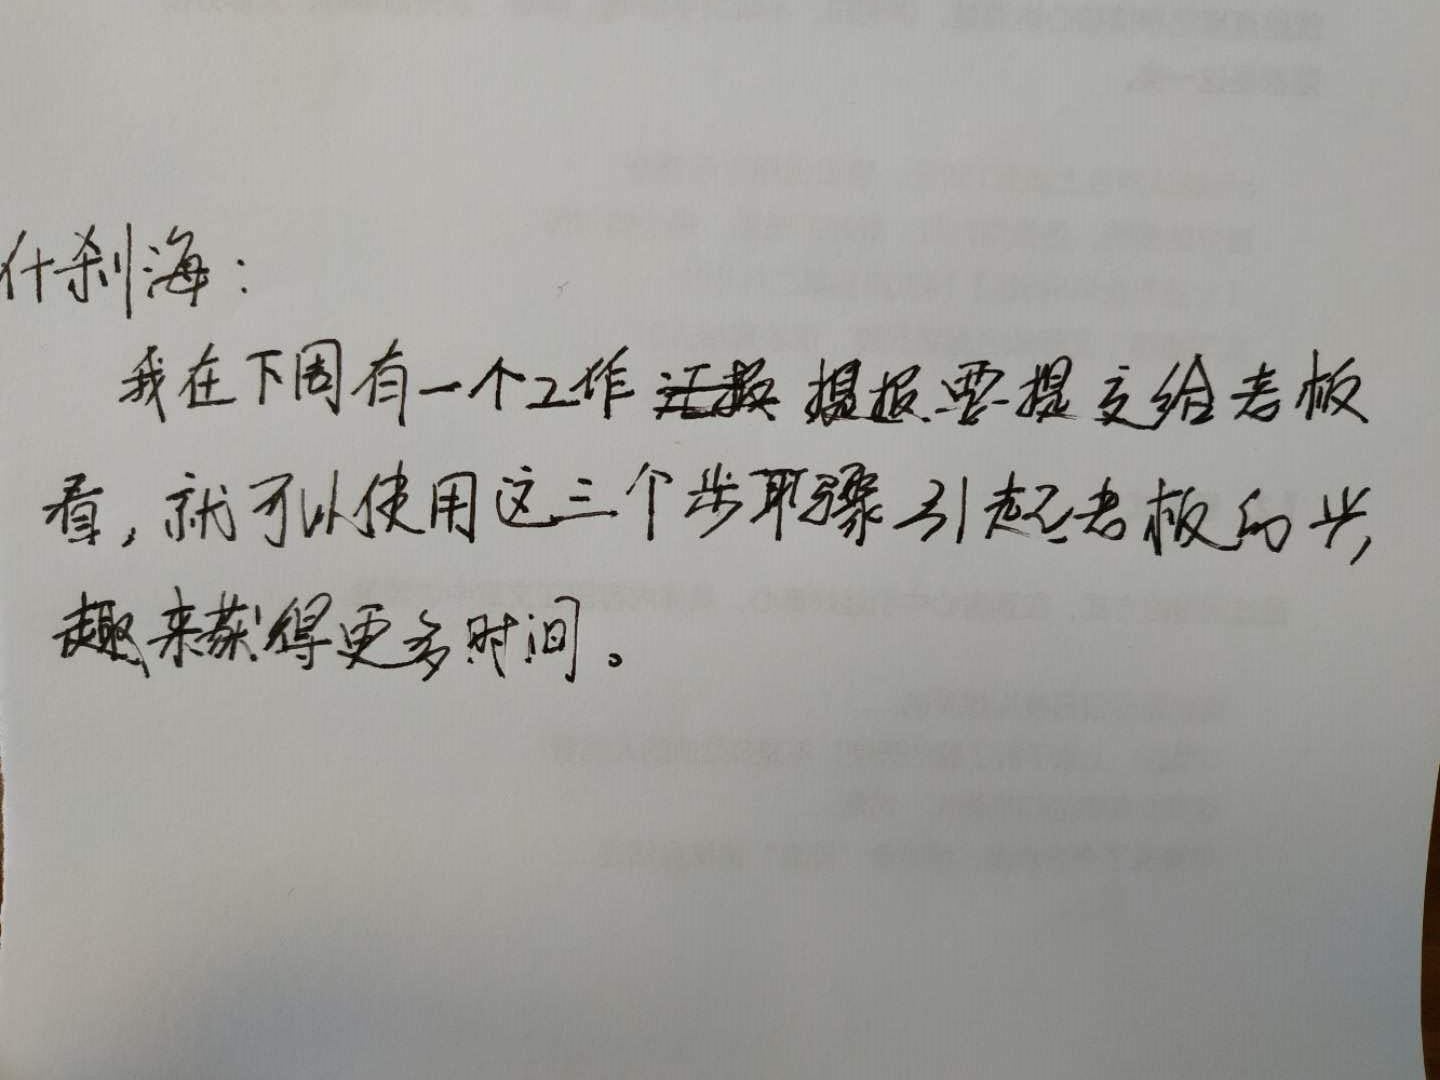 什刹海：
我在下周有一个工作汇报提报要提交给老板
看，就可以使用这三个步骤引起老板的兴
趣来获得更多时间。